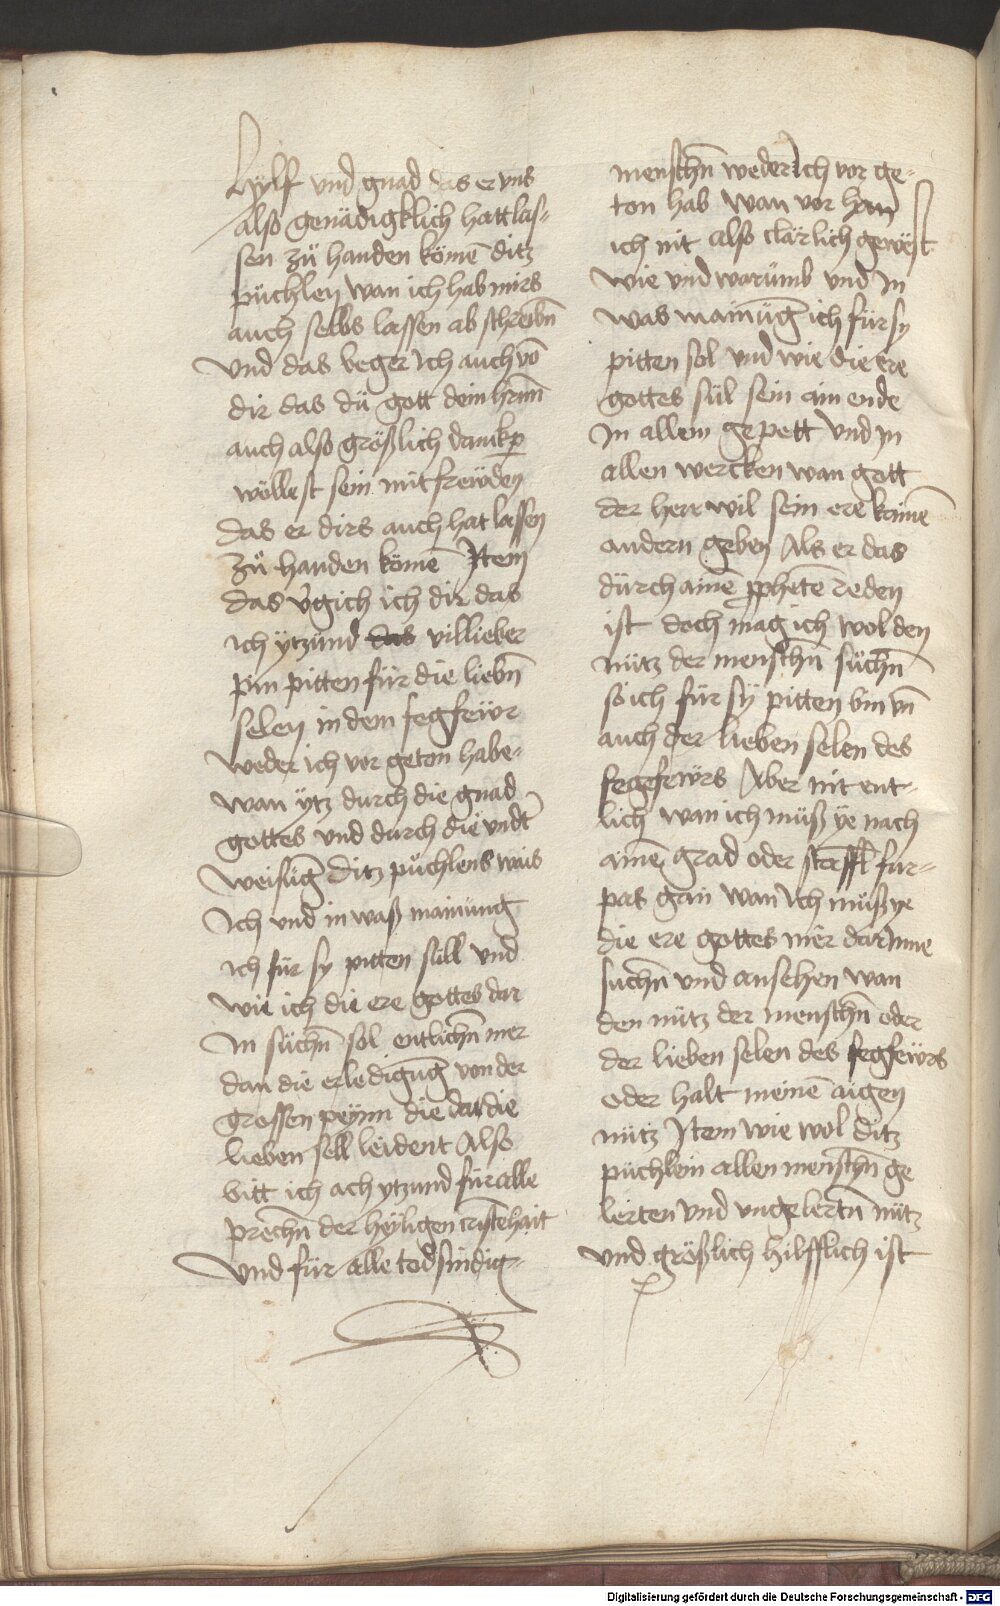 Hylf vnd gnad das er vns
also genädigklich hatt las-
sen zů handen kömē ditz
püchlen wan ich hab mirs
auch selbs lassen ab schreibn̄
vnd das beger ich auch vō
dir das dü gott dein hr̄nn
auch also größlich danckp̄
wöllest sein mit frewden
das er dirs auch hat lassen
zů handen kömē Item
das v̓gich ich dir das
ich ytzund das villieber
pin pitten für die liebn̄
selen in dem fegfewr
weder ich vor geton habe-
wan ytz durch die gnad
gottes vnd durch die vndt̓
weisūg ditz püchlens wais
Ich vnd in waß mainung
ich für sy pitten süll vnd
wie ich die ere gottes dar
In süchn̄ sol entlichn̄ mer
dan die erledigūg von der
grossen peynn die dat die
lieben sell leident Also
bitt ich ach ytzund für alle
prechn̄ der heyligen cristēhait
vnd für alle todsündig-
menschn̄ weder ich vor ge-
ton hab wan vor han
ich nit also clärlich gewest
wie vnd warümb vnd In
was mainūg ich für sy
pitten sol vnd wie die ere
gottes sül sein ain ende
In allem gepett vnd In
allen wercken wan gott
der herr wil sein ere kainē
andern geben Als er das
dürch ainē p̱phetē reden
ist doch mag ich wol den
nütz der menschn̄ süchn̄
so ich für sy pitten bin vn̄
auch der lieben selen des
fegefewrs Aber nit ent-
lich wan ich müß ye nach
ainē grad oder staffl für-
pas gan wan ich müß ye
die ere gottes mer dar Inne
suchn̄ vnd ansehen wan
den nütz der menschn̄ oder
der lieben selen des fegfewrs
oder halt meinē aigen
nütz Item wie wol ditz
püchlein allen menschn̄ ge
lerten vnd vngelertn̄ nütz
vnd größlich hilfflich ist
Digitalisierung gefördert durch die Deutsche Forschungsgemeinschaft - DFG